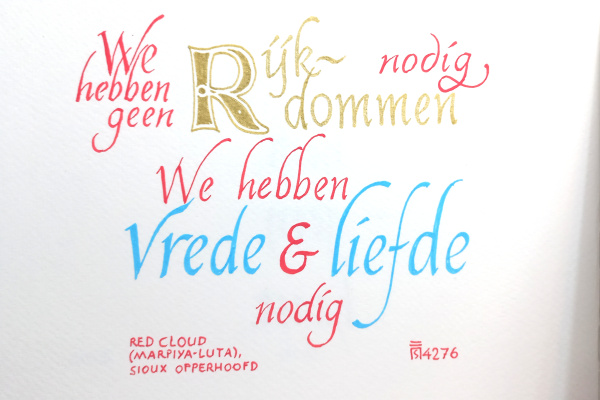 We hebben geen Rijk~dommen nodig
We hebben
Vrede & liefde
nodig
RED CLOUD
(MARPIYA-LUTA),
SIOUX OPPERHOOFD
4276